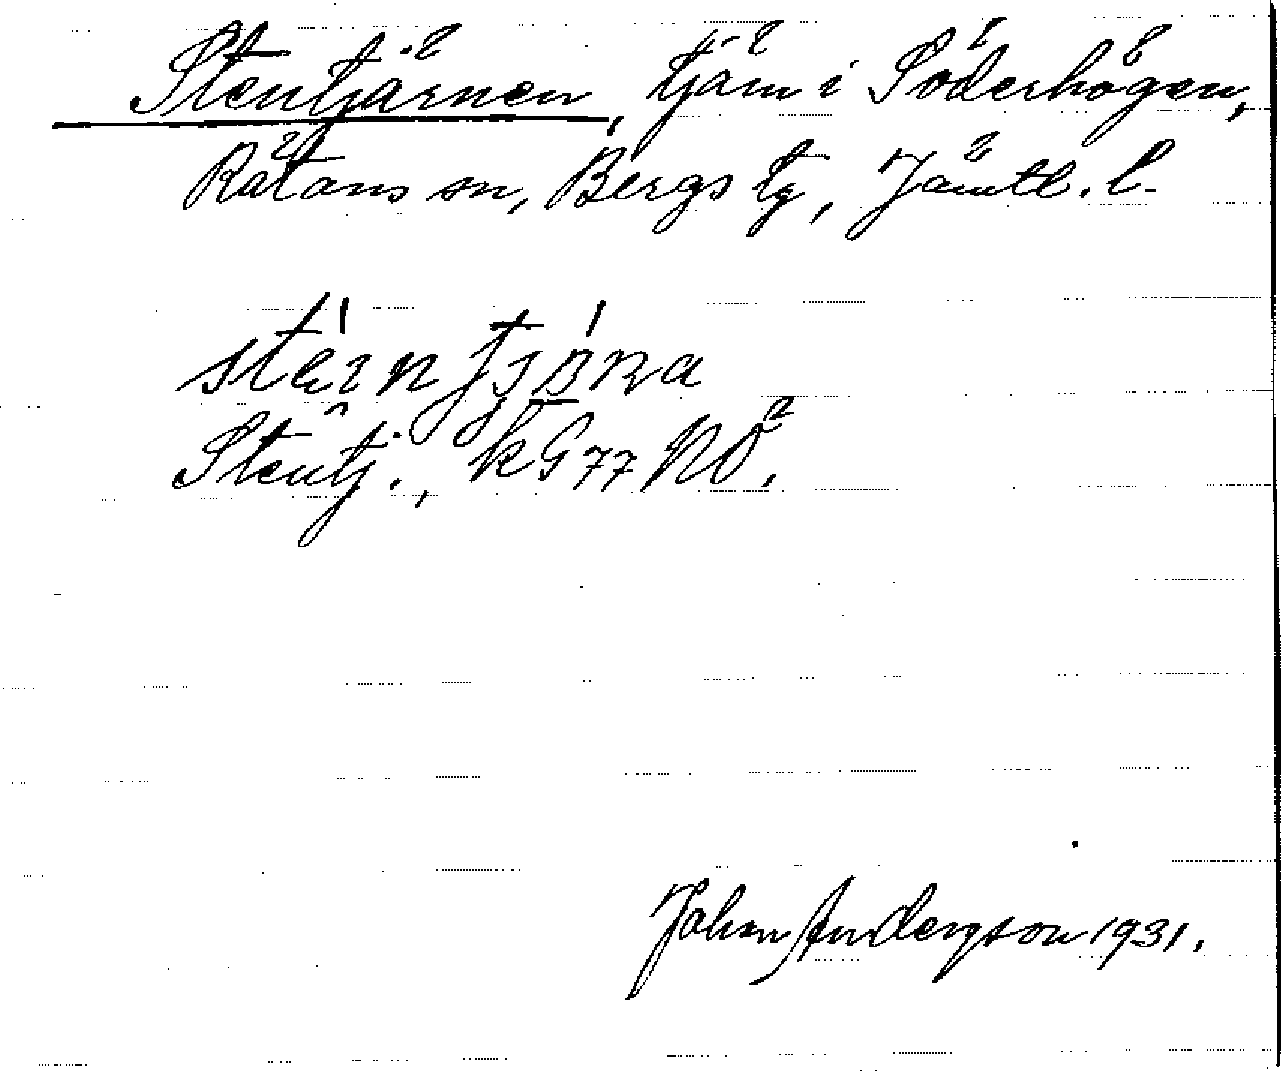 Stentjärnen, tjärn i Söderhögen,
Rätans sn, Bergs tg, Jämtl. l.
Stentj., kG77 NÖ.
John Anderzson 1931.